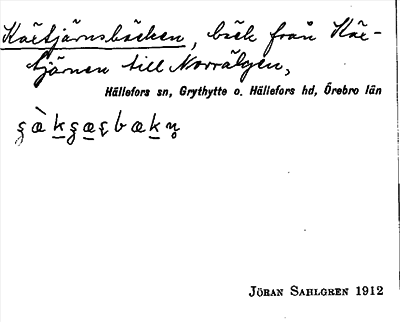 Kärtjärnsbäcken, bäck från Kär-
tjärnen till Norrälgen,
Hällefors sn, Grythytte o. Hällefors hd, Örebro län
JÖRAN SAHLGREN 1912